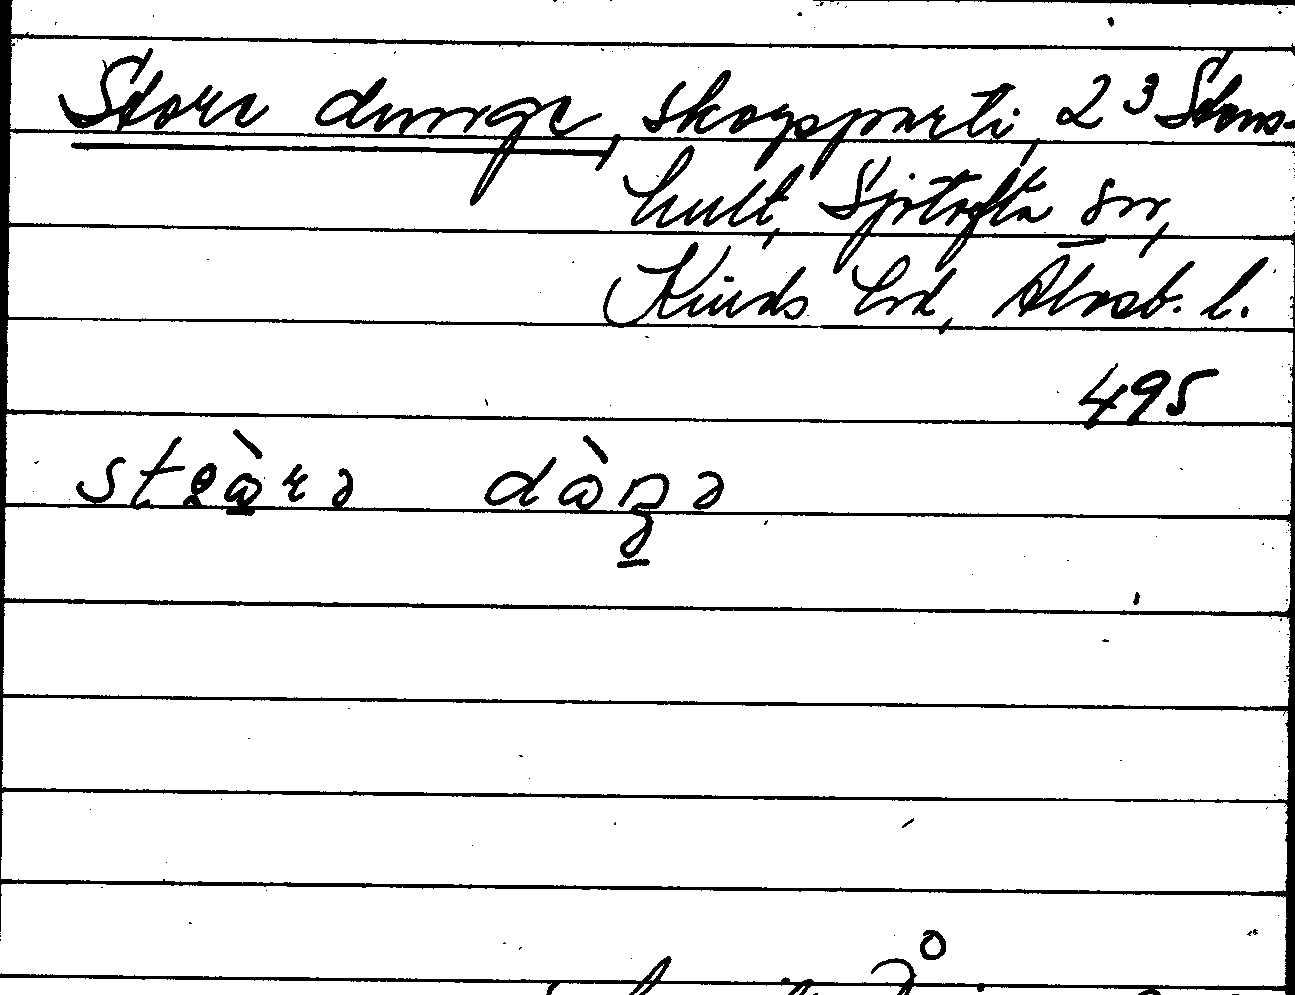 Store dunge, skogsparti, 2³ Stens-
hult, Sjötofta sn,
Kinds hd, Älvsb. l.
495